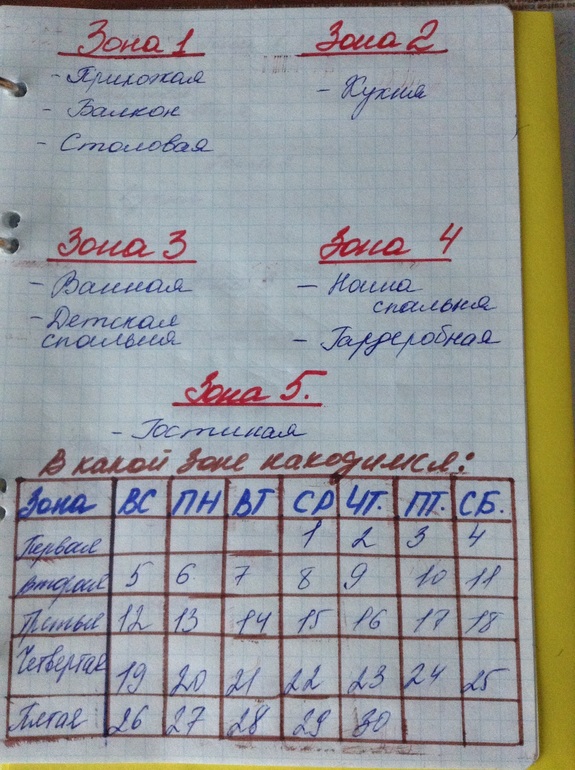 Зона 1
- Прихожая
- Балкон
- Столовая
Зона 2
- Кухня
Зона 3
- Ванная
- Детская
спальня
Зона 4
- Наша
спальня
- Гардеробная
Зона 5.
- Гостиная
В какой зоне находимся:
Зона ВС ПН ВТ СР ЧТ. ПТ. СБ.
Первая 1 2 3 4
Вторая 5 6 7 8 9 10 11
Третья 12 13 14 15 16 17 18
Четвертая 19 20 21 22 23 24 25
Пятая 26 27 28 29 30